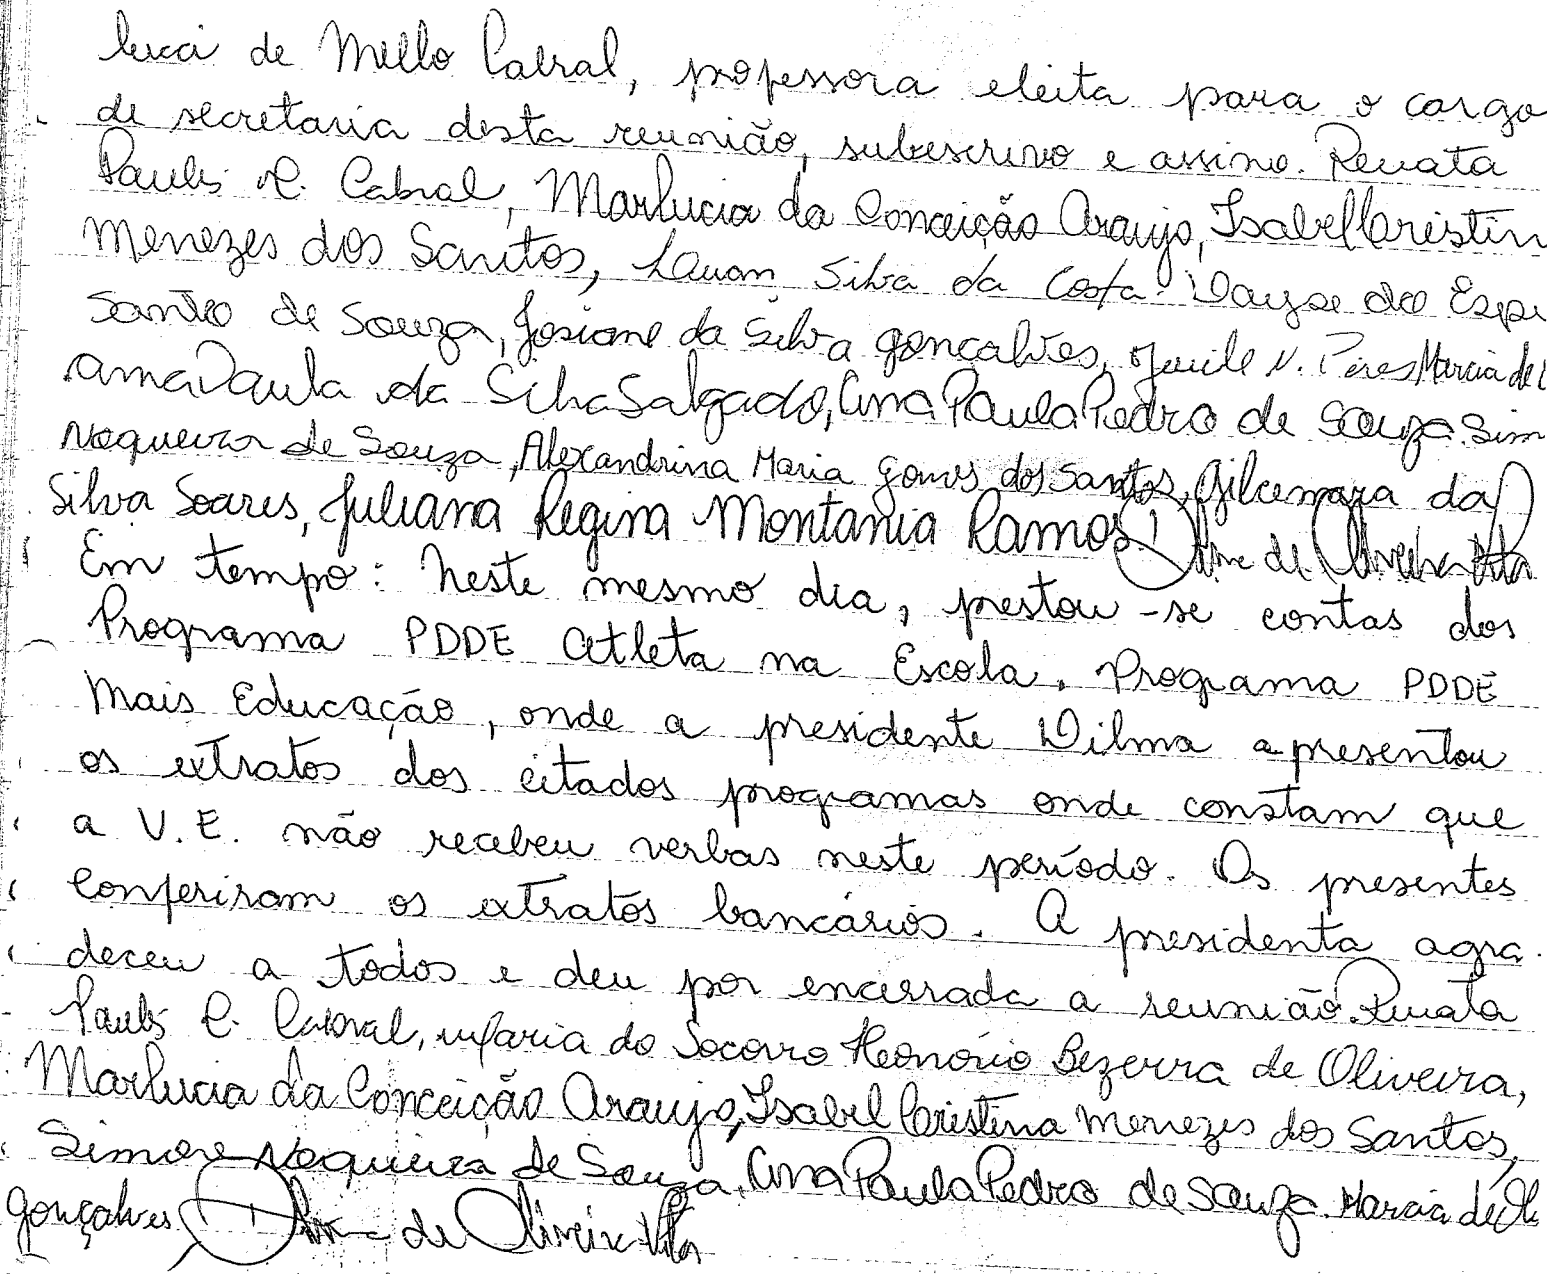 luci de Mello Cabral, professora eleita para o cargo
de secretaria desta reunião, subescrevo e assino. Renata
Paula R. Cabral, Marlucia da Conceição Araujo, Isabel Cristin
Menezes dos Santos, Luan Silva da Costa. Dayse do Espi
Santo de Souza, Josiane da Silva gonçalves, N. Peres, Marcia de
Ana Paula da Silva Salgado, Ana Paula Pedro de Souza. Sim
Nogueira de Souza, Alexandrina Maria Gomes dos Santos, Gilcemara da
Silva Soares, Juliana Regina Montania Ramos. Dilma de Oliveira
Em tempo: Neste mesmo dia, prestou-se contas dos
Programa PDDE Atleta na Escola, Programa PDDE
Mais Educação, onde a presidente Dilma apresentou
os extratos dos citados programas onde constam que
a V.E. não recebeu verbas neste período. Os presentes
conferiram os extratos bancários. A presidenta agra
deceu a todos e deu por encerrada a reunião. Renata
Paula R. Cabral, Maria do Socorro Heonório Bezerra de Oliveira,
Marlucia da Conceição Araujo, Isabel Cristina Menezes dos Santos,
Simone Nogueira de Souza, Ana Paula Pedro de Souza. Marcia de
gonçalves, Dilma de Oliveira